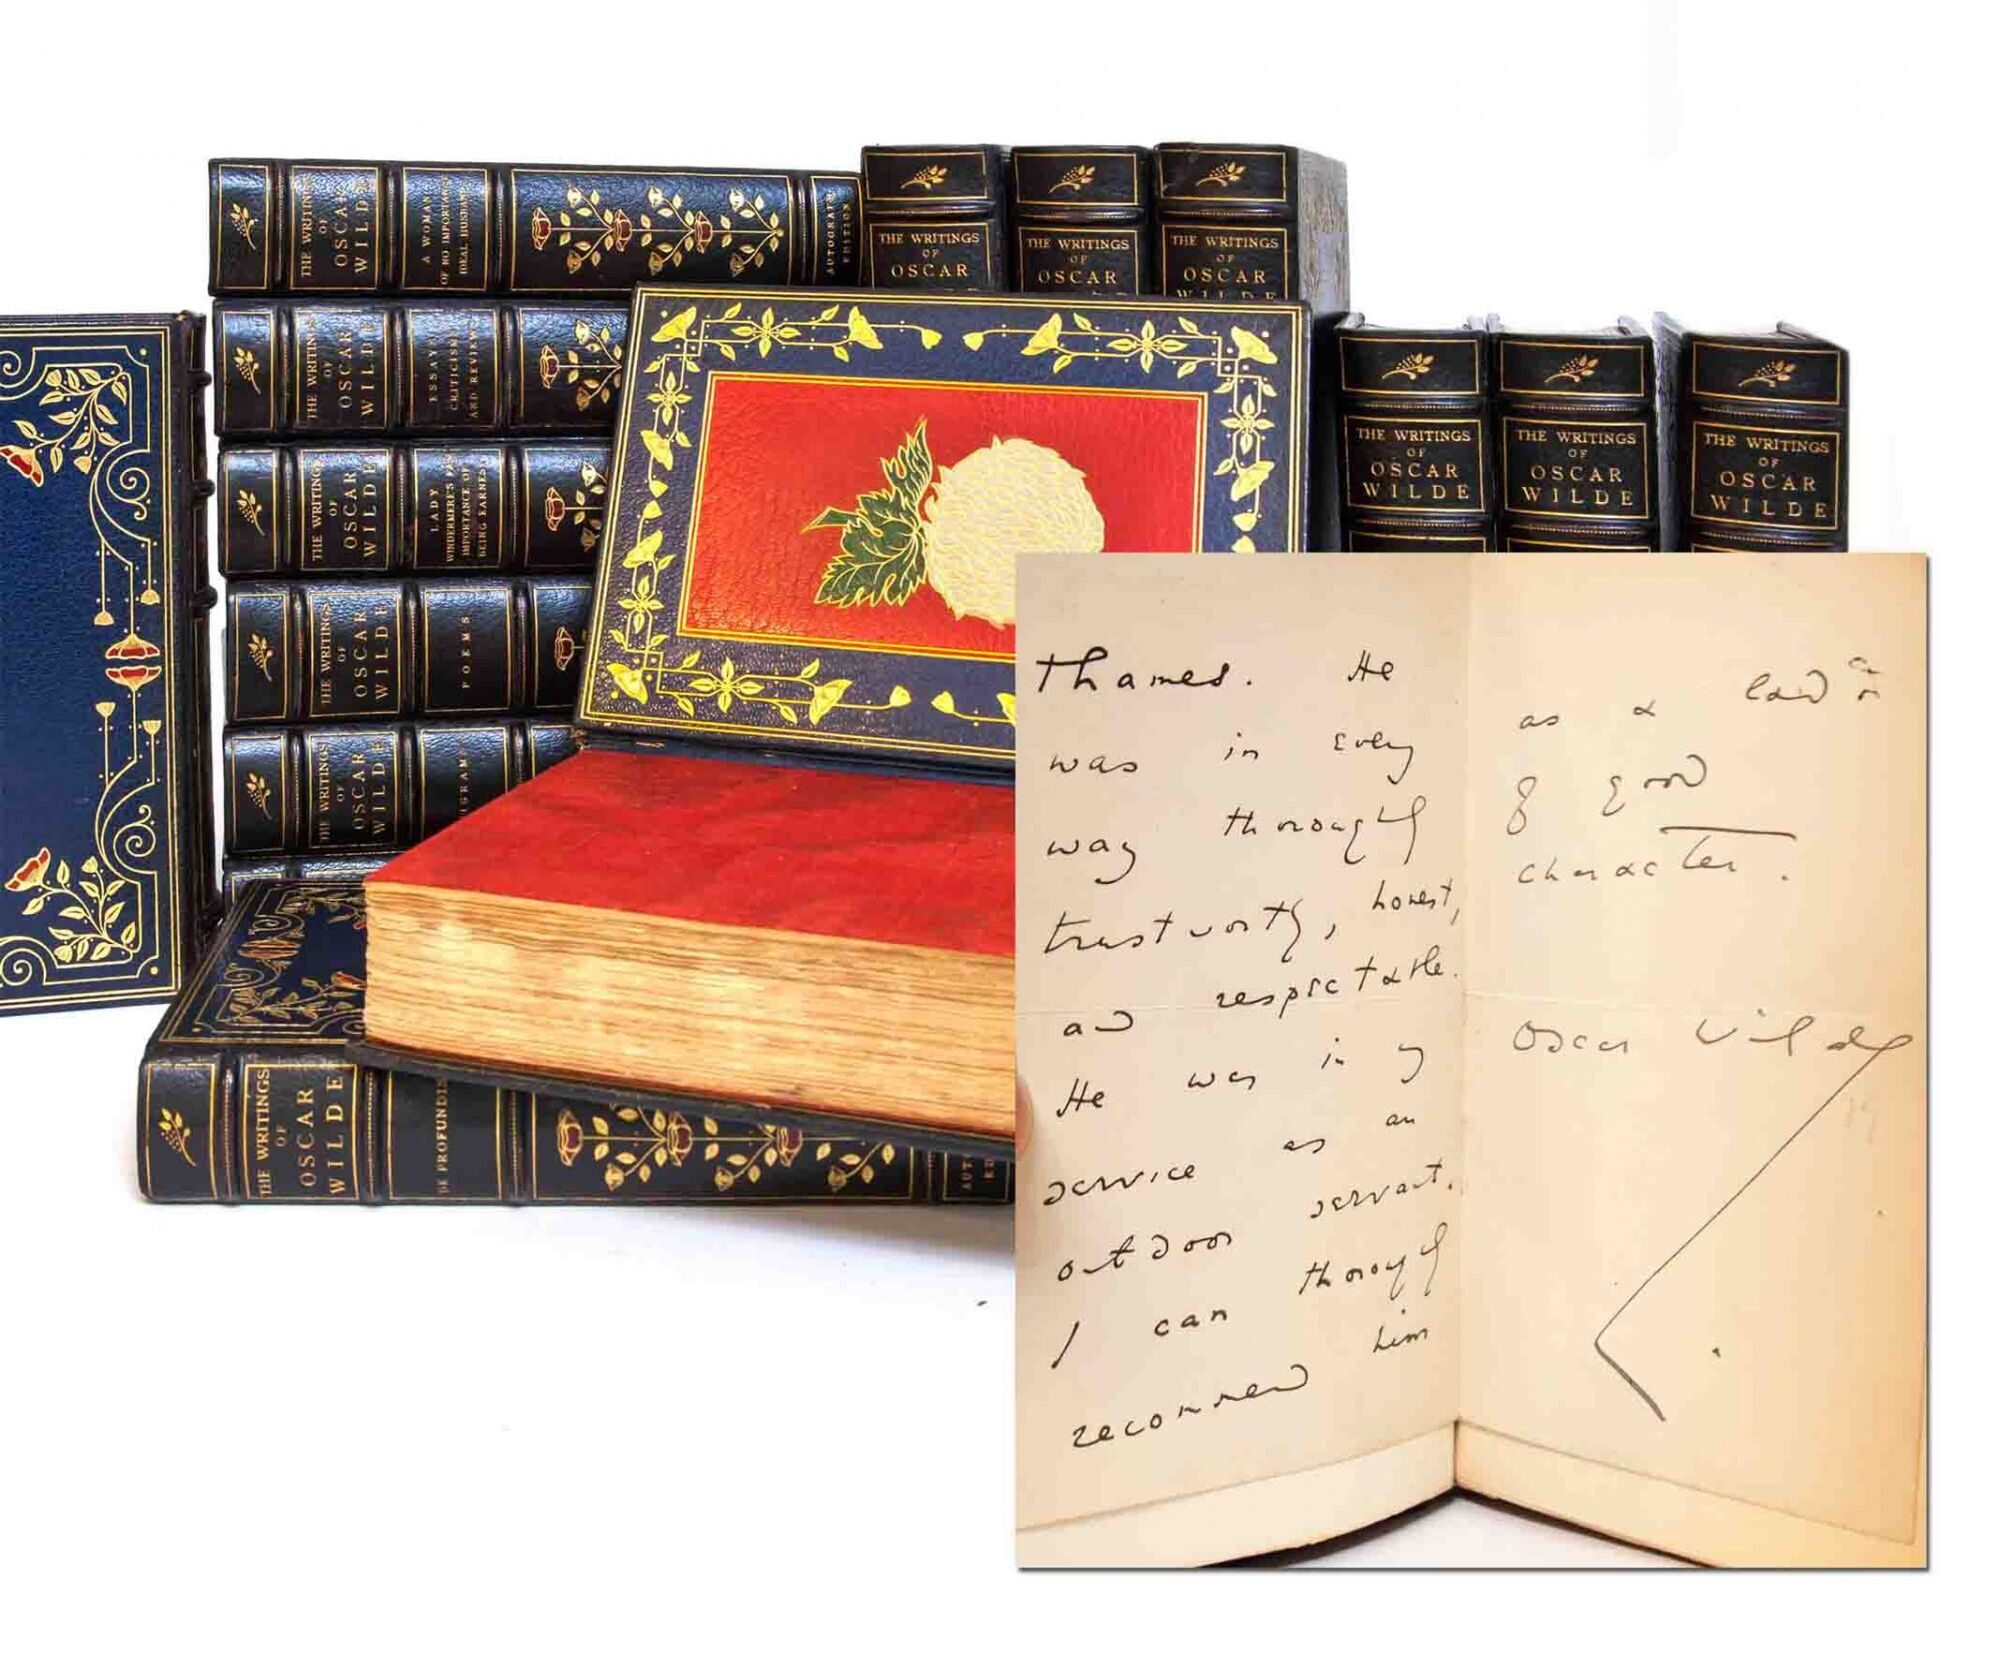 THE WRITINGS
OF
OSCAR
WILDE
A WOMAN
OF NO IMPORTANCE
IDEAL HUSBAND
AUTOGRAPH
EDITION
THE WRITINGS
OF
OSCAR
WILDE
ESSAYS
CRITICISMS
AND REVIEWS
THE WRITINGS
OF
OSCAR
WILDE
LADY
WINDERMERE'S FAN
IMPORTANCE OF
BEING EARNEST
THE WRITINGS
OF
OSCAR
WILDE
POEMS
THE WRITINGS
OF
OSCAR
WILDE
IGRAMS
THE WRITINGS
OF
OSCAR
WILDE
DE PROFUNDIS
THE WRITINGS
OF
OSCAR
THE WRITINGS
OF
OSCAR
THE WRITINGS
OF
OSCAR
WILDE
THE WRITINGS
OF
OSCAR
WILDE
THE WRITINGS
OF
OSCAR
WILDE
THE WRITINGS
OF
OSCAR
WILDE
Thames. He
was in every
way thoroughly
trustworthy, honest,
and respectable.
He was in my
service as an
outdoor servant.
I can thoroughly
recommend him
as a
of good
character.
Oscar Wilde